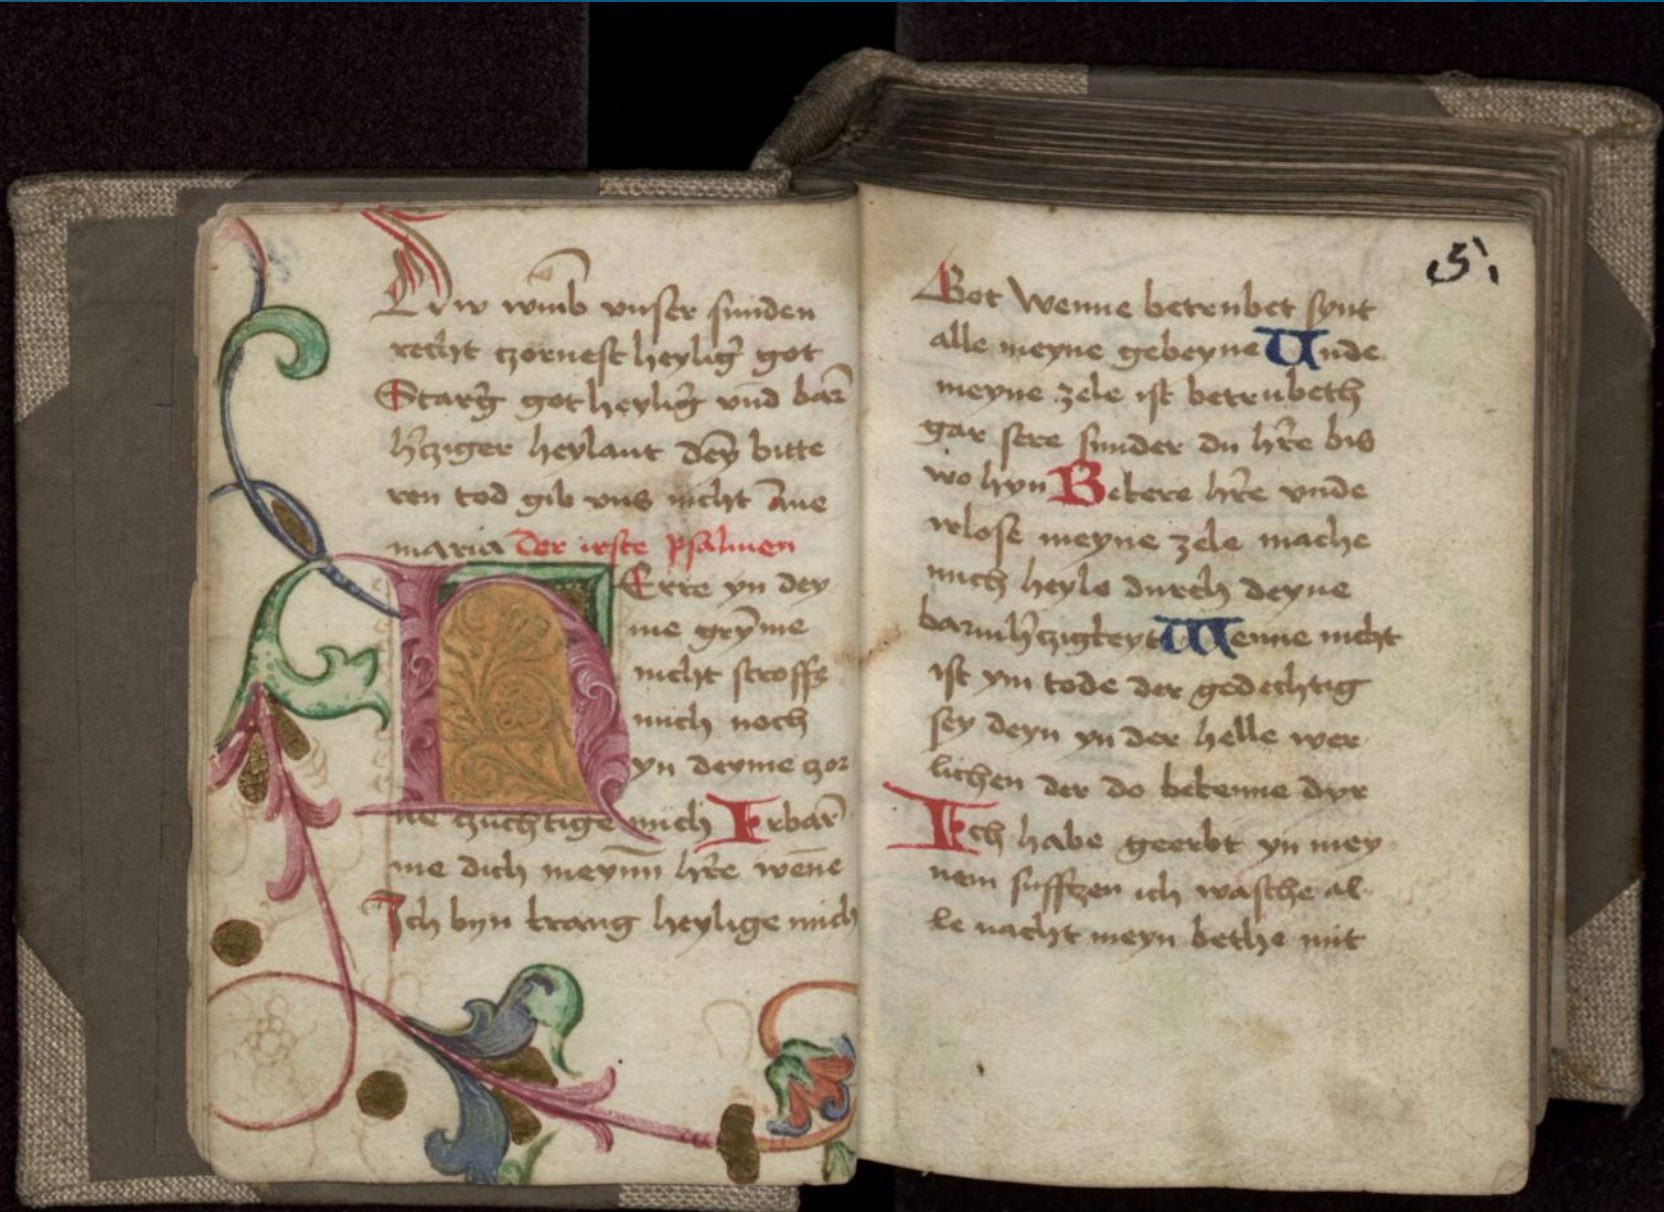 Drw wmb vnser sunden
recht czornest heylig̉ got
Starg̉ got heylig̉ vnd bar̄
hˀcziger heylant dey̅ bitte
ren tod gib vns nicht Aue
maria Der irste psalmen
HErre yn dey
me gry̅me
nicht stroffe
mich noch
yn deyme czor
ne czuchtige mich Irbar̄
me dich meyn̅n hr̄e wen̄e
Ich byn krang heylige mich
5
Got Wenne betrubet synt
alle meyne gebeyne Unde
meyne zele ist betrubeth
gar sere sunder du hr̄e bis
wo hyn Bekere hr̄e vnde
irlose meyne zele mache
mich heyle durch deyne
barmhˀczigkeyt Wenne nicht
ist ym tode der gedechtig
sey deyn yn der helle wer
lichen der do bekenne dyr
Ich habe geerbt yn mey
nem sufftzen ich wasche al
le nacht meyn bethe mit